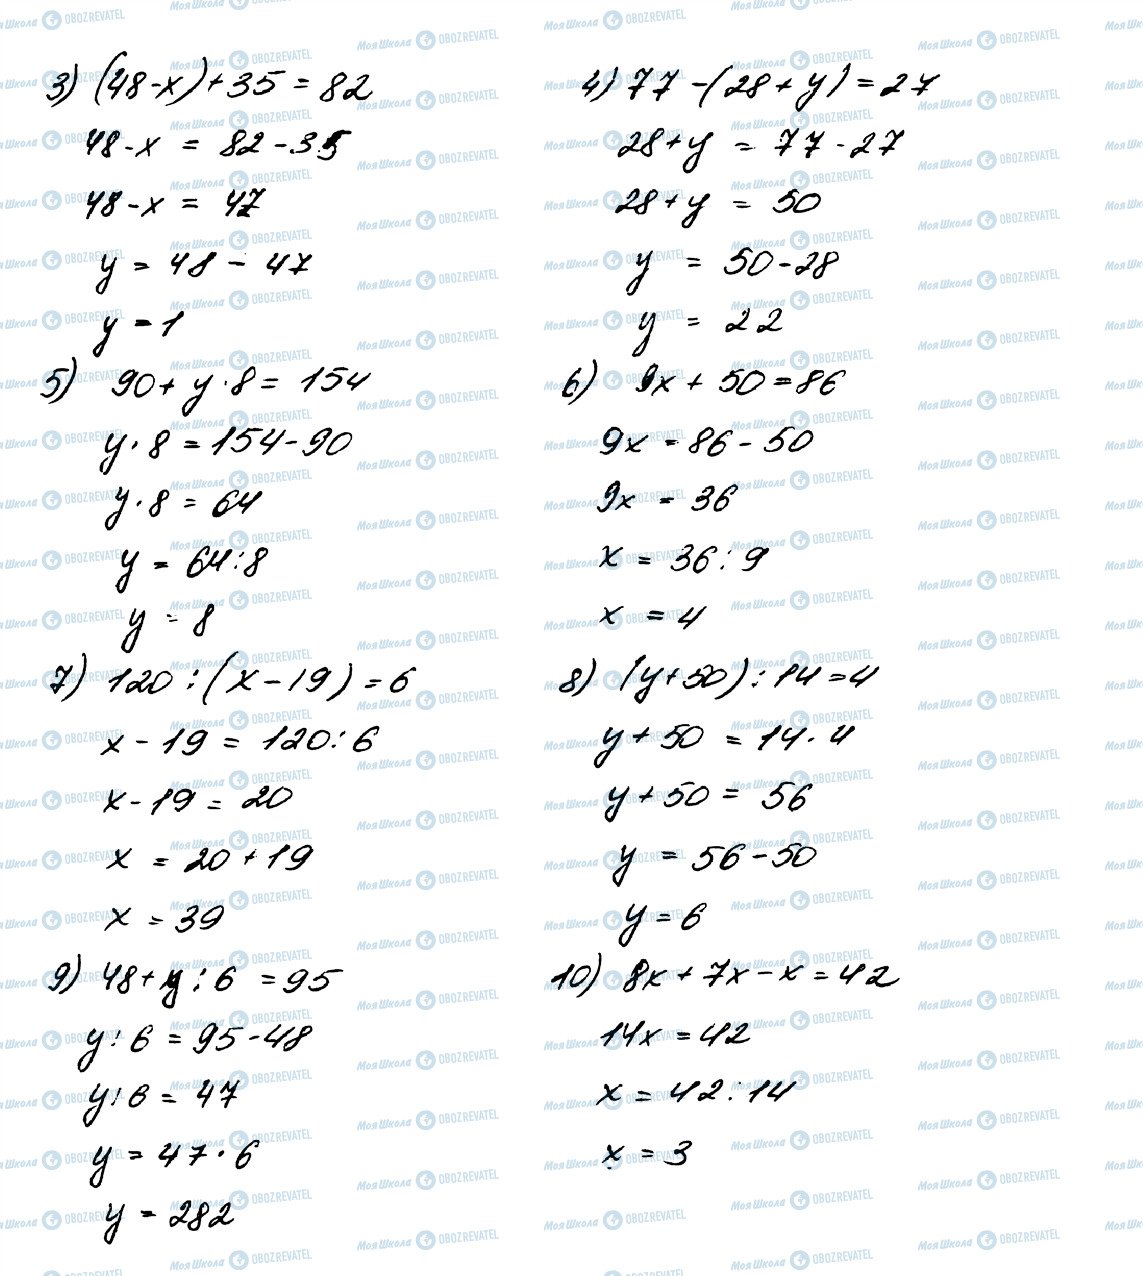 3) (48-x)+35=82
48-x = 82-35
48-x = 47
y = 48 - 47
y = 1
4) 77-(28+y)=27
28+y = 77-27
28+y = 50
y = 50-28
y = 22
5) 90+y·8=154
y·8=154-90
y·8=64
y = 64:8
y = 8
6) 9x+50=86
9x = 86-50
9x = 36
x = 36:9
x = 4
7) 120:(x-19)=6
x-19 = 120:6
x-19 = 20
x = 20+19
x = 39
8) (y+50):14=4
y+50 = 14·4
y+50 = 56
y = 56-50
y = 6
9) 48+y:6 = 95
y:6 = 95-48
y:6 = 47
y = 47·6
y = 282
10) 8x+7x-x=42
14x = 42
x = 42:14
x = 3
Моя Школа OBOZREVATEL